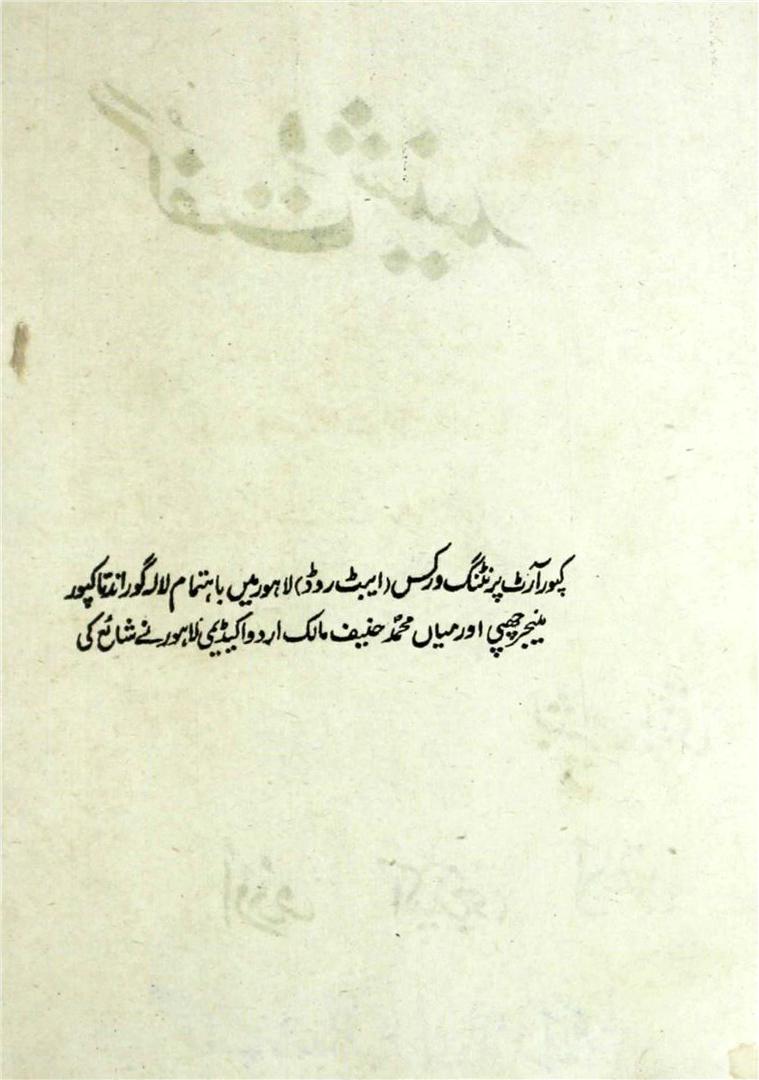 کپور آرٹ پرنٹنگ ورکس (ایبٹ روڈ) لاہور میں باہتمام لالہ گوراندتا کپور
منیجر چھپی اور میاں محمد حنیف مالک اردو اکیڈیمی لاہور نے شائع کی